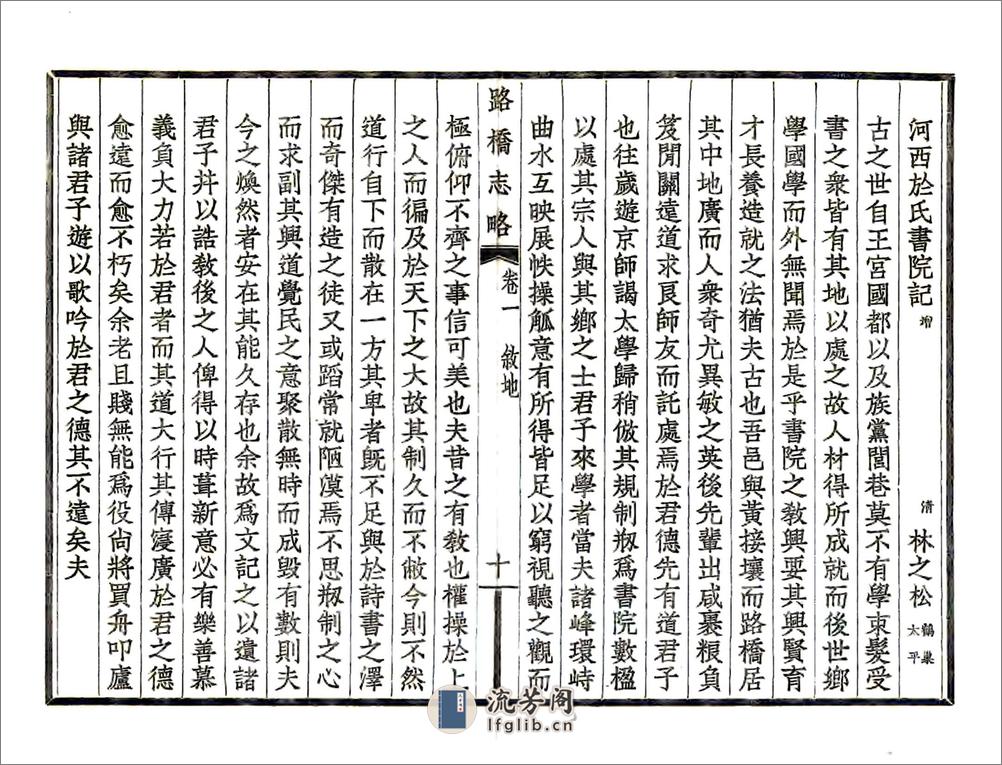 河西於氏書院記 增 清 林之松 鶴巢 太平
古之世自王宮國都以及族黨閭巷莫不有學束髮受
書之衆皆有其地以處之故人材得所成就而後世鄉
學國學而外無聞焉於是乎書院之敎興要其興賢育
才長養造就之法猶夫古也吾邑與黃接壤而路橋居
其中地廣而人衆奇尤異敏之英後先輩出咸裹粻負
笈閒關遠道求良師友而託處焉於君德先有道君子
也往歲遊京師謁太學歸稍倣其規制剏爲書院數楹
以處其宗人與其鄉之士君子來學者當夫諸峰環峙
曲水互映展帙操觚意有所得皆足以窮視聽之觀而
路橋志略 卷一 敘地 十
極俯仰不齊之事信可美也夫昔之有敎也權操於上
之人而徧及於天下之大故其制久而不敝今則不然
道行自下而散在一方其卑者旣不足與於詩書之澤
而奇傑有造之徒又或蹈常就陋漠焉不思剏制之心
而求副其興道覺民之意聚散無時而成毀有數則夫
今之煥然者安在其能久存也余故爲文記之以遺諸
君子幷以誥敎後之人俾得以時葺新意必有樂善慕
義負大力若於君者而其道大行其傳寖廣於君之德
愈遠而愈不朽矣余老且賤無能爲役尙將買舟叩廬
與諸君子遊以歌吟於君之德其不遠矣夫
流芳阁
lfglib.cn